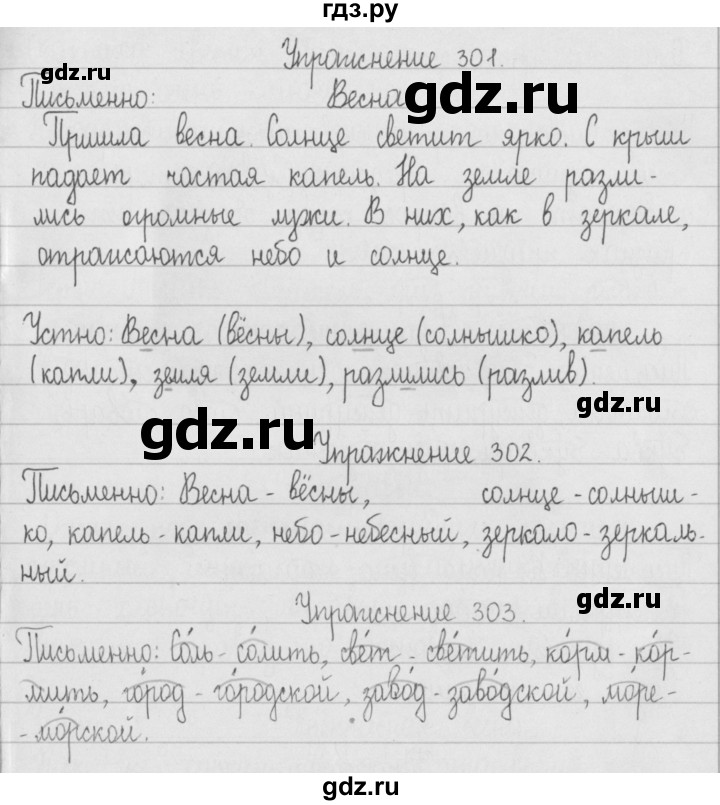 гдз.ру
Упражнение 301.
gdz.ru
Письменно: Весна
gdz.ru
Пришла весна. Солнце светит ярко. С крыш
падает частая капель. На земле разли-
лись огромные лужи. В них, как в зеркале,
отражаются небо и солнце.
Устно: Весна (вёсны), солнце (солнышко), капель
(капли), земля (земли), разлились (разлив).
gdz.ru
gdz.ru
Упражнение 302.
Письменно: Весна - вёсны, солнце - солныш-
ко, капель - капли, небо - небесный, зеркало - зеркаль-
ный.
gdz.ru
Упражнение 303.
Письменно: Со́ль - со́лить, све́т - све́тить, ко́рм - ко́р-
мить, го́род - го́родской, заво́д - заво́дской, мо́ре -
- мо́рской.
gdz.ru
gdz.ru